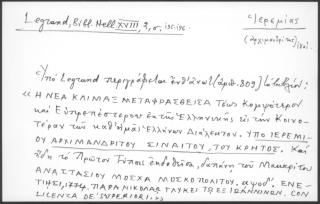 Legrand, Bibl. Hell XVIII, 2, σ. 195-196.
Ἱερεμίας
(ἀρχιμανδρίτης)
Ὑπό Legrand περιγράφεται ἐνθ' ἀνωτ. (ἀριθ. 809)
« Ἡ ΝΕΑ ΚΛΙΜΑΞ ΜΕΤΑΦΡΑΣΘΕΙΣΑ Τέως Κομψότερον
καί Εὐπρεπέστερον ἐκ τῆς Ἑλληνικῆς εἰς τήν Κοινο-
τέραν τῶν καθ' ἡμᾶς Ἑλλήνων Διάλεκτον. ΥΠΟ ΙΕΡΕΜΙ-
ΟΥ ΑΡΧΙΜΑΝΔΡΙΤΟΥ ΣΙΝΑΙΤΟΥ, ΤΟΥ ΚΡΗΤΟΣ. Καί
ἤδη τό Πρῶτον Τύποις ἐκδοθεῖσα, δαπάνῃ τοῦ Μακαρίτου
ΑΝΑΣΤΑΣΙΟΥ ΜΟΣΧΑ ΜΟΣΚΟΠΟΛΙΤΟΥ, αψοδ'. ΕΝΕ-
ΤΙΗΣΙ, 1774. ΠΑΡΑ ΝΙΚΟΛΑΩ ΓΛΥΚΕΙ ΤΩ ΕΞ ΙΩΑΝΝΙΝΩΝ. CON
LICENZA DE' SUPERIORI. »